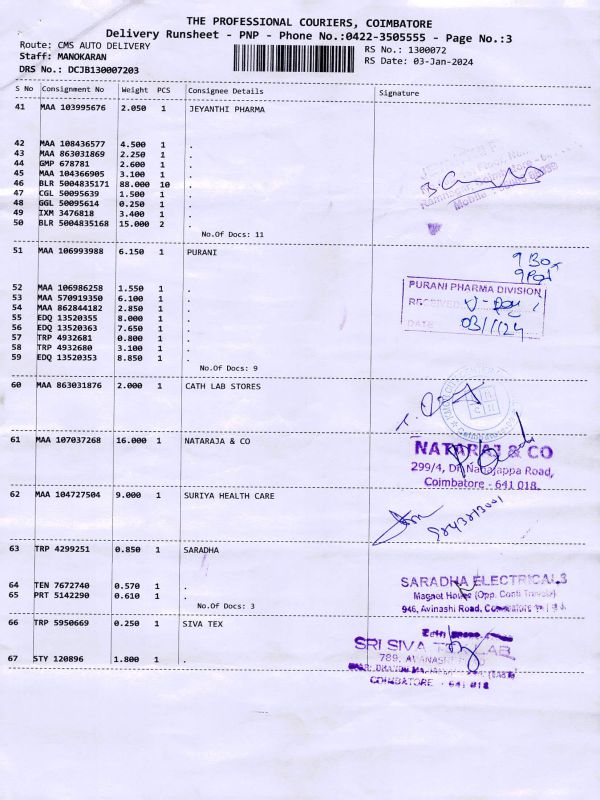 THE PROFESSIONAL COURIERS, COIMBATORE
Delivery Runsheet - PNP - Phone No.:0422-3505555 - Page No.:3
Route: CMS AUTO DELIVERY
Staff: MANOKARAN
DRS No.: DCJB130007203
RS No.: 1300072
RS Date: 03-Jan-2024
S No Consignment No Weight PCS Consignee Details Signature
41 MAA 103995676 2.050 1 JEYANTHI PHARMA
42 MAA 108436577 4.500 1 .
43 MAA 863031869 2.250 1 .
44 GMP 678781 2.600 1 .
45 MAA 104366905 3.100 1 .
46 BLR 5004835171 88.000 10 .
47 CGL 50095639 1.500 1 .
48 GGL 50095614 0.250 1 .
49 IXM 3476818 3.400 1 .
50 BLR 5004835168 15.000 2 .
No.Of Docs: 11
51 MAA 106993988 6.150 1 PURANI
9 Box
52 MAA 106986258 1.550 1 .
53 MAA 570919350 6.100 1 .
54 MAA 862844182 2.850 1 .
55 EDQ 13520355 8.000 1 .
56 EDQ 13520363 7.650 1 .
57 TRP 4932681 0.800 1 .
58 TRP 4932680 3.100 1 .
59 EDQ 13520353 8.850 1 .
No.Of Docs: 9
PURANI PHARMA DIVISION
RECEIVED
DATE 03/1/24
60 MAA 863031876 2.000 1 CATH LAB STORES
61 MAA 107037268 16.000 1 NATARAJA & CO
NATARAJ & CO
299/4, Dr. Nanjappa Road,
Coimbatore - 641 018.
62 MAA 104727504 9.000 1 SURIYA HEALTH CARE
63 TRP 4299251 0.850 1 SARADHA
64 TEN 7672740 0.570 1 .
65 PRT 5142290 0.610 1 .
No.Of Docs: 3
SARADHA ELECTRICALS
Magnet House (Opp. Conti Travels)
946, Avinashi Road, Coimbatore
66 TRP 5950669 0.250 1 SIVA TEX
67 STY 120896 1.800 1 .
SRI SIVA TEX LAB
789, AVANASHI
COIMBATORE - 641 018